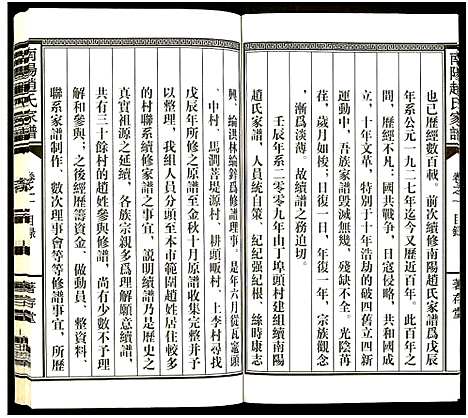 南陽趙氏家譜
卷之一 目錄
善存堂
也已歷經數百載。前次續修南陽趙氏家譜為戊辰
年系公元一九二七年迄今又歷百近年。在此百年
間，歷經不凡：國共戰爭、日寇侵略，共和國成
立，十年文革，特別是十年浩劫的破四舊立四新
運動中，吾族家譜毀滅無幾、殘缺不全。光陰苒
荏，歲月如梭；日復一日，年復一年，宗族觀念
漸爲淡薄。故續譜之務迫切。
壬辰年系二零零九年由丁埠頭村建組續南陽
趙氏家譜，自策資、紀紀強紀根、絲時康志
興、綸洪林綸鋅爲修譜理事。是年六月從瓦竈頭
、中村、馬澗菩堤源村、耕頭畈村、上李村尋找
戊辰年所修之原譜至金秋十月原譜收集完整并予
以整理，我組人員統分頭至本市範圍趙姓居住較多
的村聯系續修家譜之事宜，説明續譜乃是歷史之
真實祖源之延續，各族宗親多爲理解願意續譜，
共有三十餘村的趙姓參與修譜，尚有少數不予理
解和參與，之後經歷籌資金，做動員、整資料、
聯系家譜制作、數次理事會等等修譜事宜，所歷
南陽趙氏家譜
卷之一 目錄
善存堂